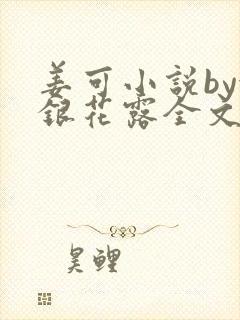 姜可小说by
銀花露全文
昊鲤